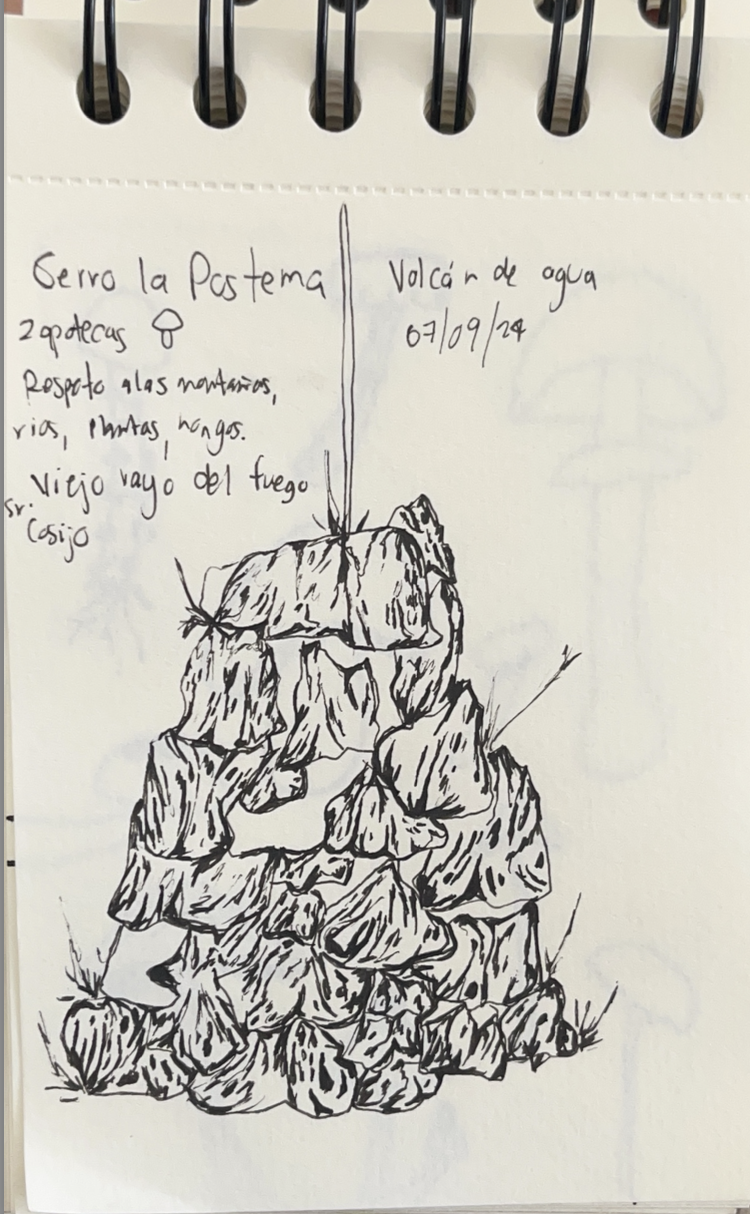 Cerro la Postema
Zapotecas
Respeto a las montañas,
rios, plantas, hongos.
Viejo rayo del fuego
Sr.
Cosijo
Volcán de agua
07/09/24